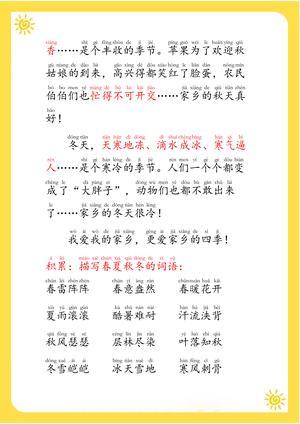 香……是个丰收的季节。苹果为了欢迎秋
姑娘的到来，高兴得都笑红了脸蛋，农民
伯伯们也忙得不可开交……家乡的秋天真
好！
冬天，天寒地冻、滴水成冰、寒气逼
人……是个寒冷的季节。人们一个个都变
成了“大胖子”，动物们也都不敢出来
了……家乡的冬天很冷！
我爱我的家乡，更爱家乡的四季！
积累：描写春夏秋冬的词语：
春雷阵阵 春意盎然 春暖花开
夏雨滚滚 酷暑难耐 汗流浃背
秋风瑟瑟 层林尽染 叶落知秋
冬雪皑皑 冰天雪地 寒风刺骨